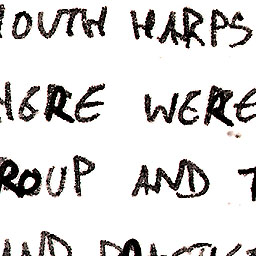 MOUTH HARPS
HERE WERE
ROUP AND T
AND